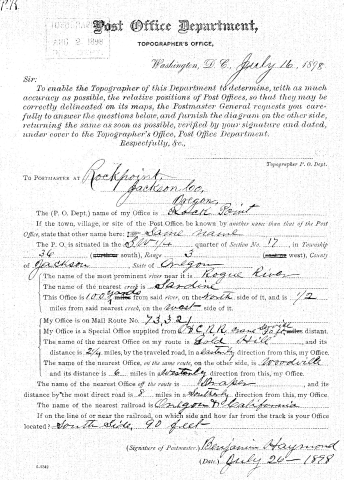 P.R.
AUG 2 1898
Post Office Department,
TOPOGRAPHER'S OFFICE,
Washington, D. C. July 16, 1898
Sir:
To enable the Topographer of this Department to determine, with as much
accuracy as possible, the relative positions of Post Offices, so that they may be
correctly delineated on its maps, the Postmaster General requests you care-
fully to answer the questions below, and furnish the diagram on the other side,
returning the same as soon as possible, verified by your signature and dated,
under cover to the Topographer's Office, Post Office Department.
Respectfully, &c.,
Topographer P. O. Dept.
TO POSTMASTER AT Rockpoint
Jackson Co,
Oregon
The (P. O. Dept.) name of my Office is Rock Point
If the town, village, or site of the Post Office be known by another name than that of the Post
Office, state that other name here: Same Name
The P. O. is situated in the quarter of Section No. 17, in Township
36 , Range 3 (West), County
of Jackson, State of Oregon
The name of the most prominent river near it is Rogue River
The name of the nearest creek is Sardine
This Office is 100 yards from said river, on the North side of it, and is 1/2
miles from said nearest creek, on the west side of it.
My Office is on Mail Route No. 73,321
My Office is a Special Office supplied from distant.
The name of the nearest Office on my route is Gold Hill, and its
distance is 2¼ miles, by the traveled road, in a Easterly direction from this, my Office.
The name of the nearest Office, on the same route, on the other side, is Woodville
and its distance is 6 miles in Westerly direction from this, my Office.
The name of the nearest Office off the route is Draper, and its
distance by the most direct road is 8 miles in Southerly direction from this, my Office.
The name of the nearest railroad is Oregon & California
If on the line of or near the railroad, on which side and how far from the track is your Office
located? South Side, 90 feet
(Signature of Postmaster) Benjamin Haymond
(Date) July 26 - 1898